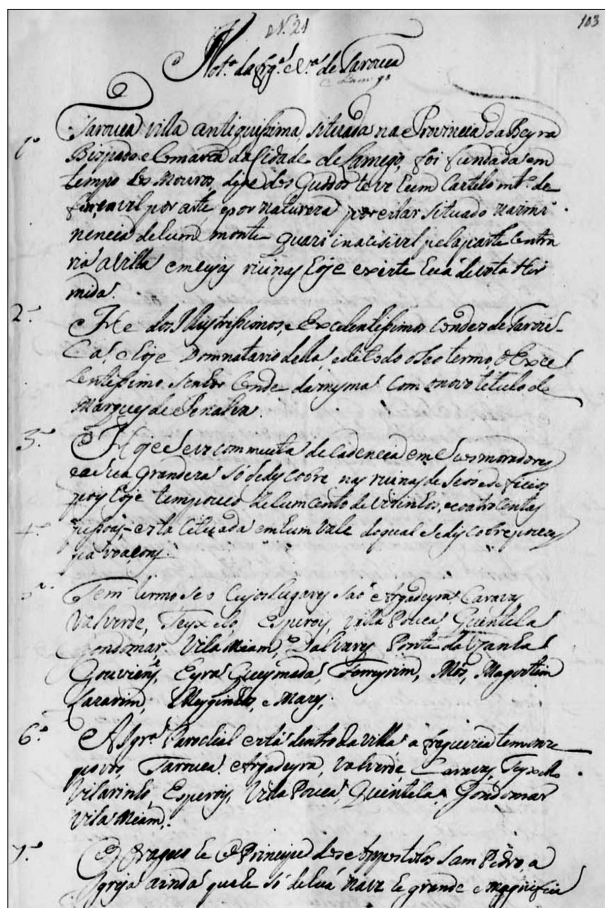 N. 21
103
Not.ª da frg.ª e V.ª de Tarouca
1º Tarouca villa antiquissima situada na Provincia da Beyra
Bispado e Comarca da Cidade de Lamego, foi fundada em
tempo dos Mouros, de que dos Godos teve hum Castelo mt.º de
por arte e por natureza por estar situado na emi
nencia de hum monte quasi inacesivel pela parte contra
ria a villa em cujas ruinas hoje existe hua devota Her
mida.
2º He dos Illustrissimos, e Excelentissimos Condes de Tarou
ca, e hoje Donnatario della e de todo o seo termo o Exce
lentissimo Senhor Conde da mesma com o novo titulo de
Marques de Penalva.
3º Hoje se ve com muita decadencia em seos moradores
e a sua grandeza só se descobre nas ruinas de seos edeficios
pois hoje tem pouco de hum cento de visinhos, e coatro centas
4º pessoas, está cituada em hum vale do qual se descobre poucas
5º Tem termo seo cujos lugares saõ Argadeyra, Caravas,
Valverde, Teyxelo, Esporoes, Villa Pouca, Quintela
Gondomar, Vila Meam, Dalvares, Ponte da Ganha
Gouviens, Eyra Queymada, Ferreyrim, Mos, Magostim
Lazarim, Meyginhos, e Mazes,
6º A Igr.ª Parochial está dentro da villa a freguezia tem onze
povos, Tarouca, Argadeyra, Valverde, Caravas, Teyxello
Vilarinho, Esporoes, Villa Pouca, Quintela, Gondomar
Vila Meam.
7º O Orago he o Principe dos Appostolos Sam Pedro a
Igreja ainda que he só de huã nave he grande e magnifica